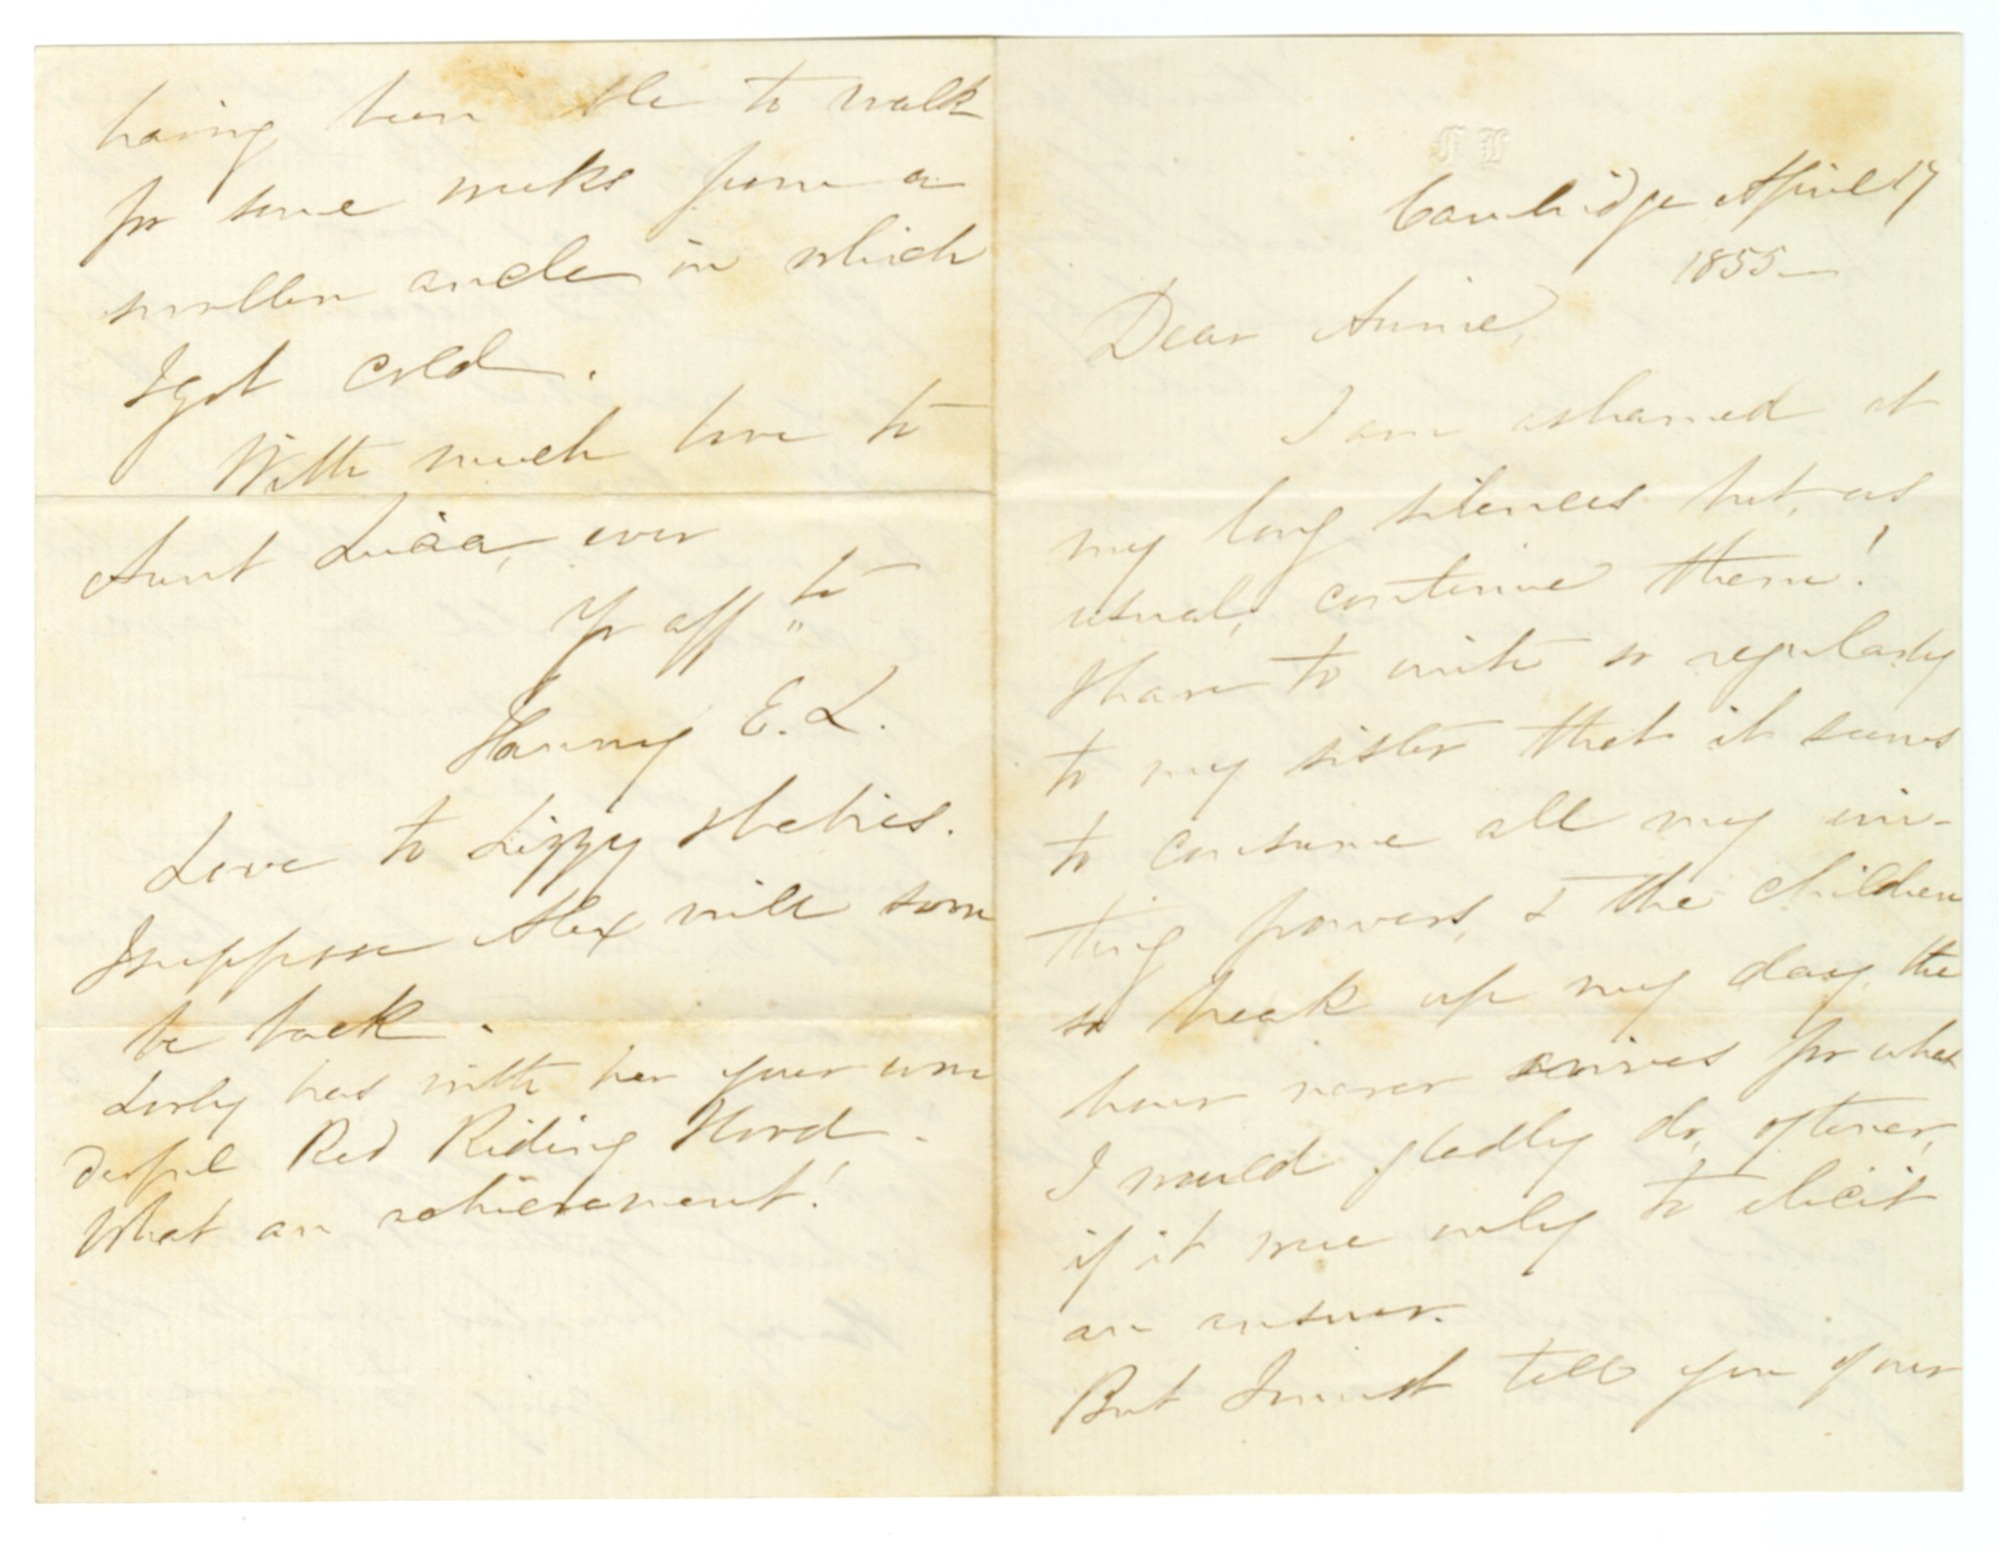 having been able to walk
for some weeks from a
swollen ancle in which
I got cold.
With much love to
Aunt Luisa, ever
Yr aff "te"
Fanny E. L.
Love to Lizzy & babies.
I suppose Alex will soon
be back.
Lively has with her your won
derful Red Riding Hood.
What an achievement!
F L
Cambridge April 17
1855—
Dear Annie,
I am ashamed at
my long silences but, as
usual, continue them!
I have to write so regularly
to my sister that it seems
to consume all my wri-
ting powers, & the children
so break up my day, the
hour never arrives for what
I would gladly do, oftener,
if it were only to elicit
an answer.
But I must tell you of our